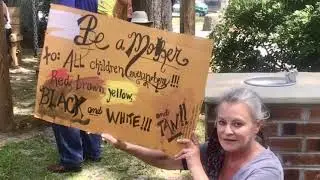 Be a Mother
to: ALL children everywhere!!!
Red, brown, yellow,
BLACK and WHITE!!! and TAN!!